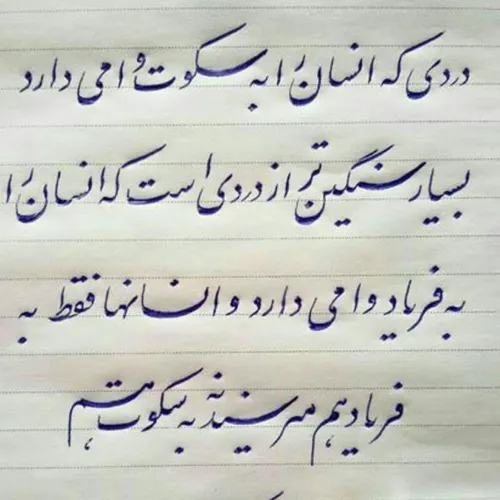 دردی که انسان را به سکوت وا می دارد
بسیار سنگین تر از دردی است که انسان را
به فریاد وا می دارد و انسانها فقط به
فریاد هم میرسند نه به سکوت هم